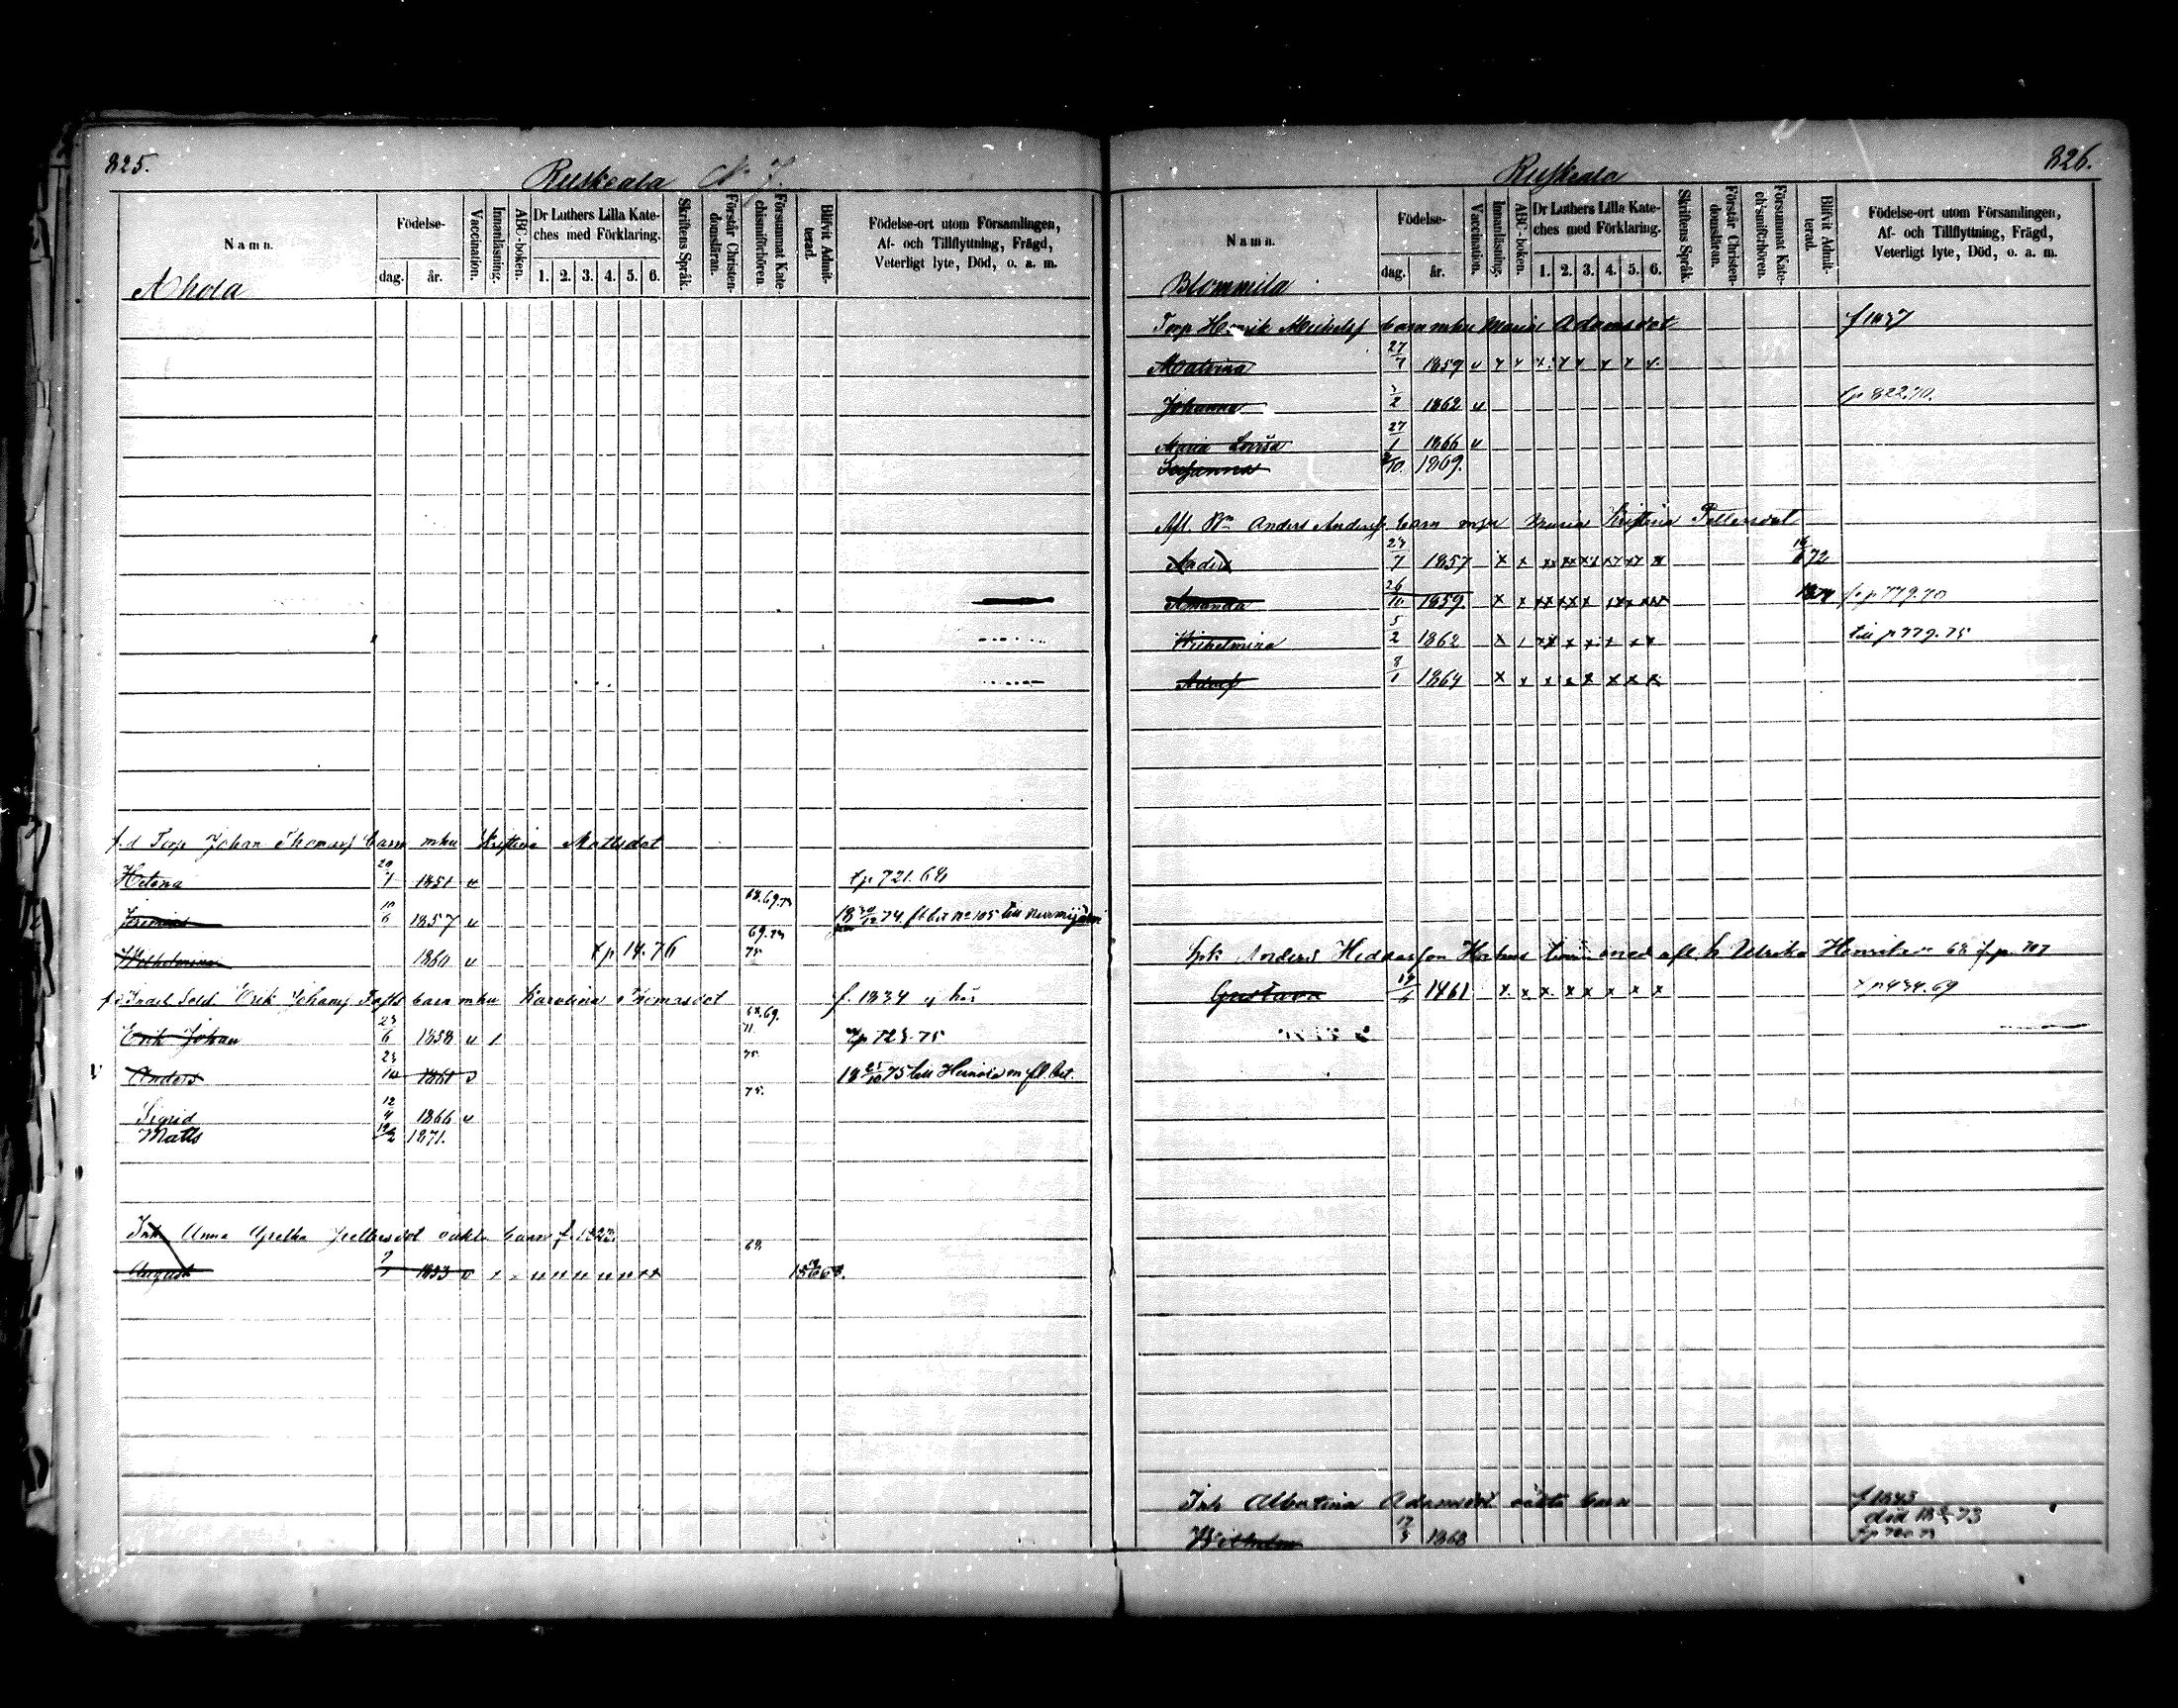 825.
Ruskeala No 7.
Namn.
Födelse-
dag.
år.
Vaccination.
Innanläsning.
ABC-boken.
Dr Luthers Lilla Kate-
ches med Förklaring.
1. 2. 3. 4. 5. 6.
Skriftens Språk.
Förstår Christen-
domsläran.
Försummat Kate-
chismiförhören.
Blifvit Admit-
terad.
Födelse-ort utom Församlingen,
Af- och Tillflyttning, Frägd,
Veterligt lyte, Död, o. a. m.
Ahola
f.d Torp Johan Thomasf barn mhu Kristina Mattsdot
Helena 20/1 1851 v tp 721. 68
Jeremias 10/6 1857 v 68.69.73 18 74. fl bet No 105 till Nurmijärvi
Wilhelmina 1860 v tp 14. 76 69.73 75
Indel Sold Erik Johansf barn mhu Karolina Thomasdot f. 1834 ej här
Erik Johan 23/6 1858 v 1 68.69. 71 tp 723. 75
Anders 1861 v 75. 75 till Heinola m fl. bet.
Sigrid 12/4 1866 v 75.
Matts 1871.
Inh Anna Greta oäkta barn
August 1853 v x 68.
826.
Ruskeala
Namn.
Födelse-
dag.
år.
Vaccination.
Innanläsning.
ABC-boken.
Dr Luthers Lilla Kate-
ches med Förklaring.
1. 2. 3. 4. 5. 6.
Skriftens Språk.
Förstår Christen-
domsläran.
Försummat Kate-
chismiförhören.
Blifvit Admit-
terad.
Födelse-ort utom Församlingen,
Af- och Tillflyttning, Frägd,
Veterligt lyte, Död, o. a. m.
Blommila
Torp Henrik Mickelsf barn mhu Maria Adamsdot f 1837
Malvina 27/7 1859 v
Johanna 1862 v tp 822.70.
Maria Lovisa 27/1 1866 v
Susanna 1869.
Afl. Anders Andersf. barn mhu Maria Kristina
Anders 1857 x x 72
Amanda 26/10 1859 x x tp 779.70
Wilhelmina 5/2 1862 x till p 779. 75
Adolf 8/1 1864 x x x x x x x x
Anders med afl. h Ulrika 68 fr p. 707
Gustava 19/6 1861 x x x x x x x x tp 434.69
Inh Albertina Adamsdot oäkta barn f 1843
död 73
Wilhelm 1868